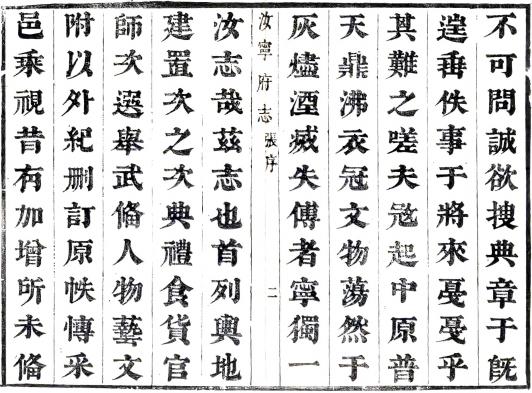 不可問誠欲搜典章于旣
逞垂佚事于將來戞戞乎
其難之嗟夫寇起中原普
天鼎沸衣冠文物蕩然于
灰燼湮滅失傳者寧獨一
汝寧府志 張序 二
汝志哉茲志也首列輿地
建置次之次典禮食貨官
師次選舉武俻人物藝文
附以外紀刪訂原帙愽采
邑乘視昔有加增所未俻